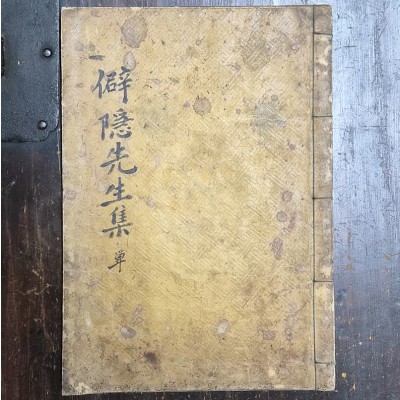 僻隱先生集 單